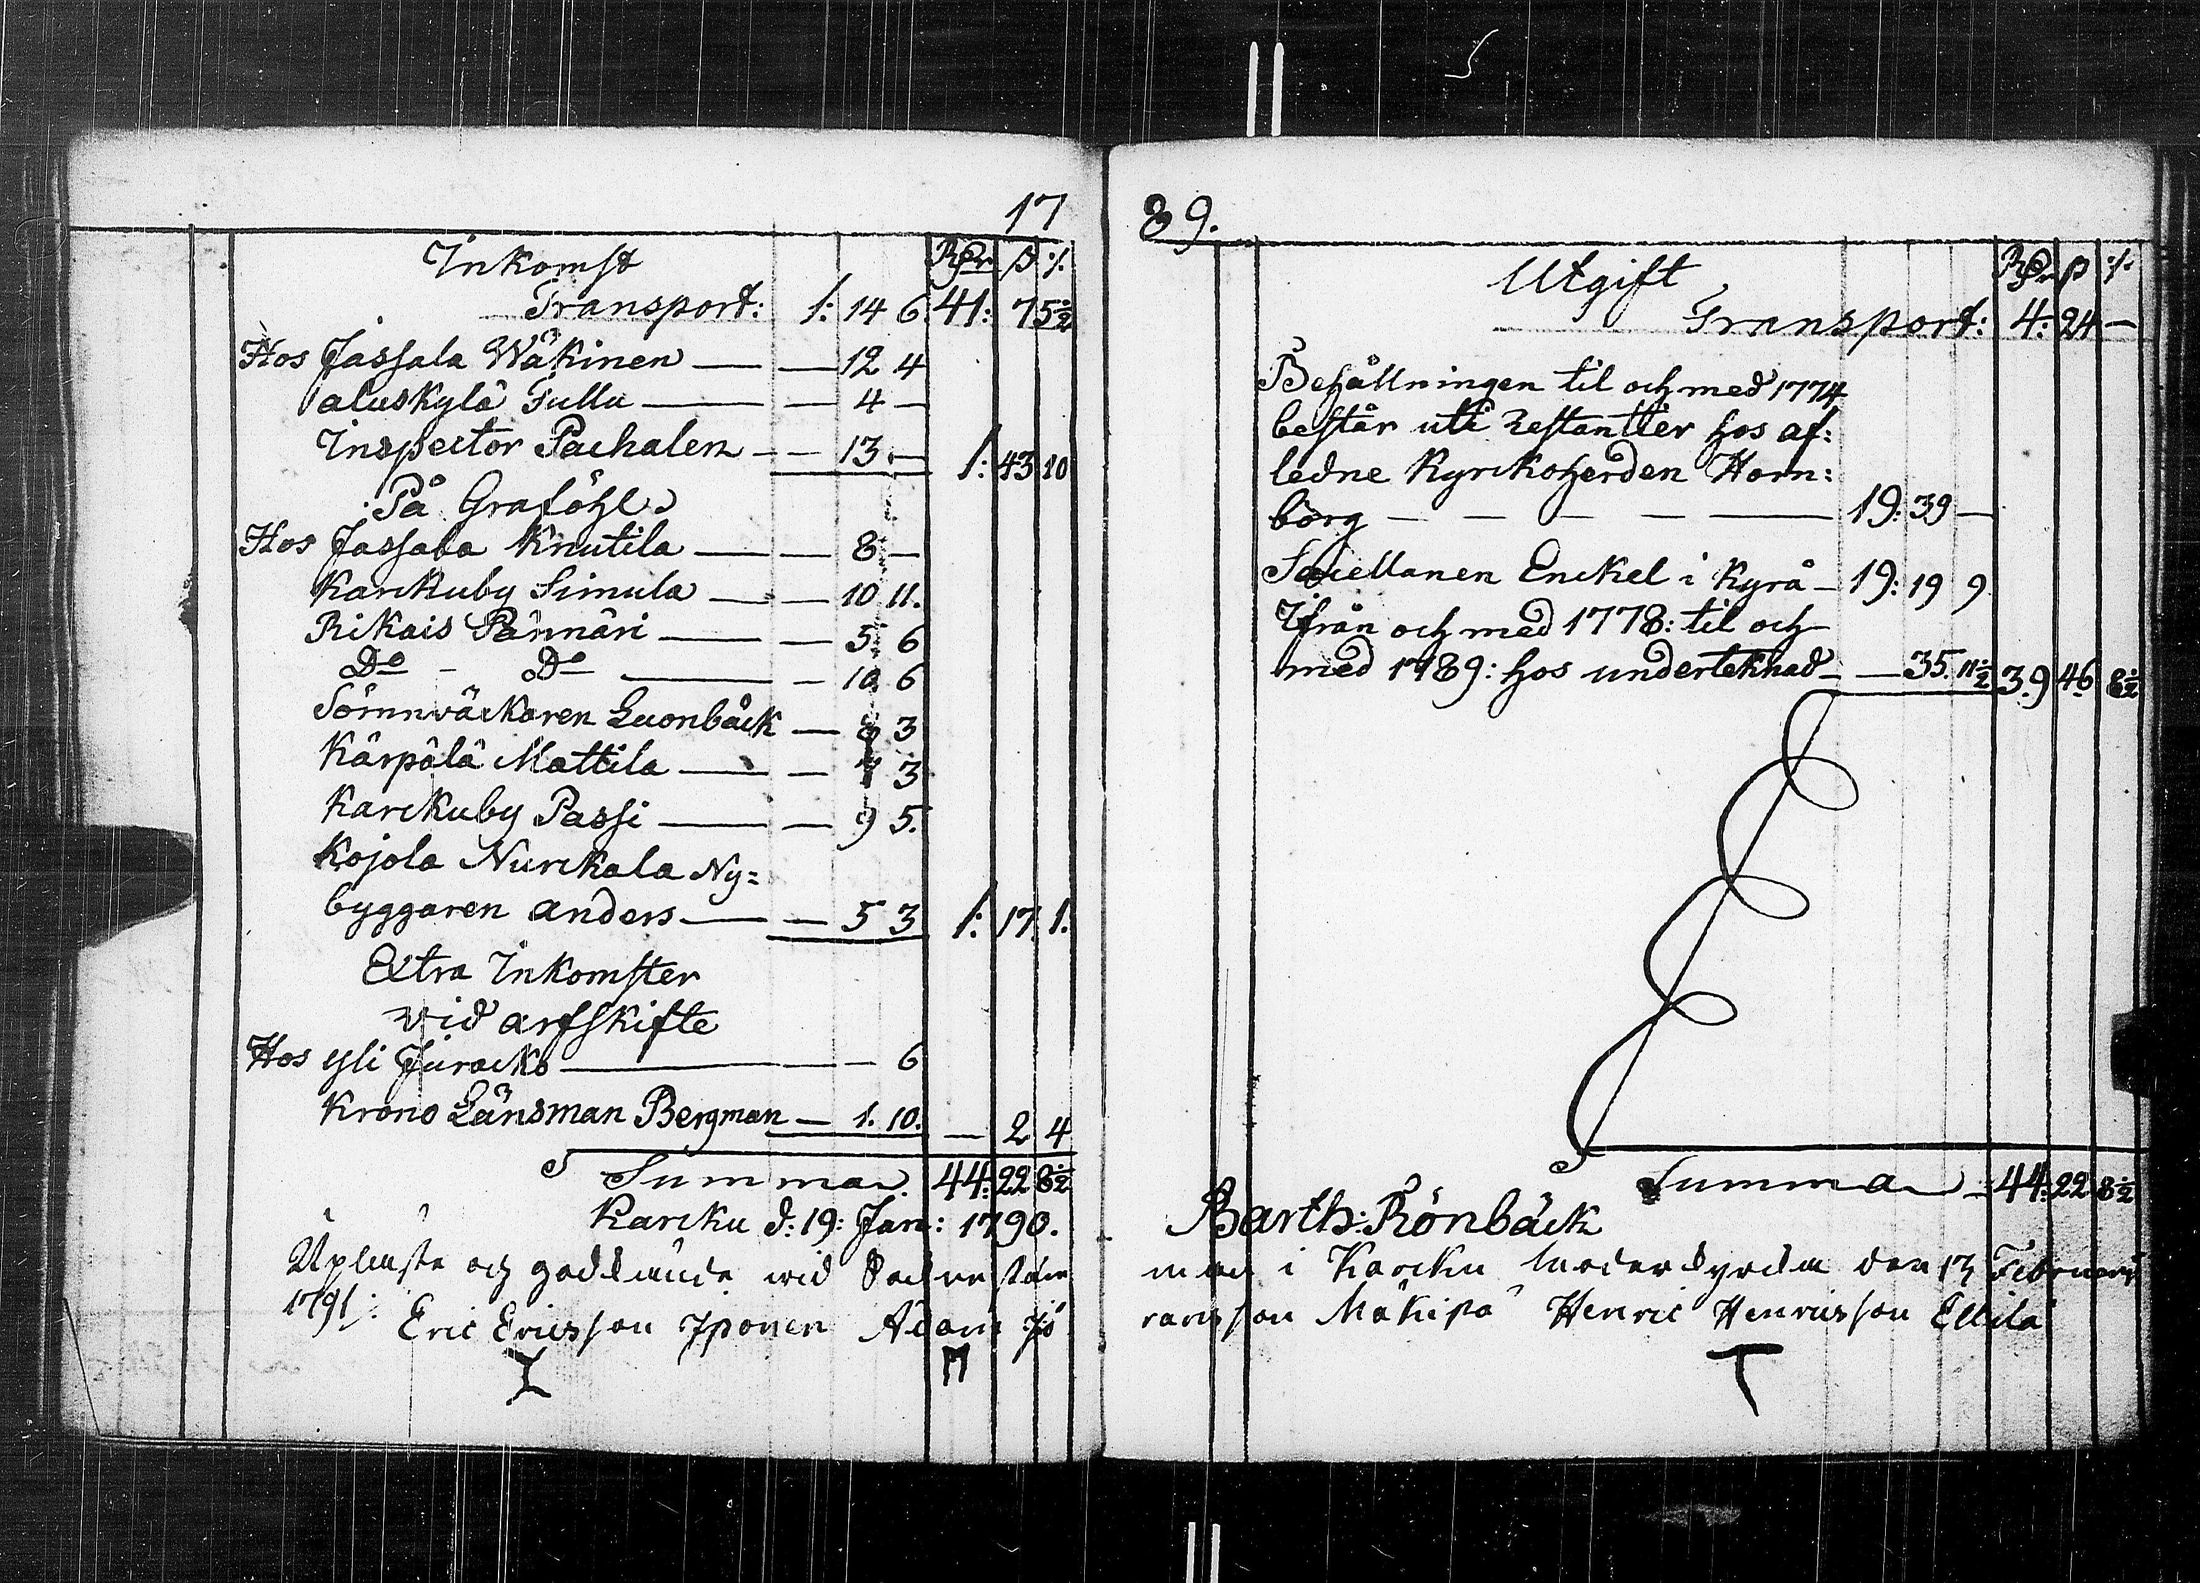 17
Inkomst Rdr ß :/.
Transport: 1: 14 6 41: 7 5½
Hos Jassala Wäkinen — — 12 4
aluskylä Tullu — — 4 —
Inspector Pachalen — — 13 — 1: 43 10
På Graföhl
Hos Jassala Knutila — — 8 —
Karckuby Simula — — 10 11.
Rikais Pännäri — — 5 6
Do — Do — — 10 6
Sömnväckaren Luonbäck — 8 3
Kärpälä Mattila — — 7 3
Karckuby Passi — — 9 5.
Kojola Nurckala Ny=
byggaren anders — — 5 3 1: 17. 1.
Extra Inkomster
vid arfskifte
Hos Yli Juracko — — 6
Krono Länsman Bergman — 1. 10. — 2 4
Summa 44: 22 8½
Karcku d: 19: Jan: 1790.
Uplaste och godkände wid Sockne stäm
1791:
Eric Ericsson Iponen Adam
89.
Utgift Rdr ß :/.
Transport: 4: 24 —
Behållningen til och med 1774
består uti Restantier hos af=
ledne Kyrckoherden Horn=
borg — — — — — 19: 39 —
Capellanen Enckel i Kyrå — 19: 19 9
Ifrån och med 1778: til och
med 1789: hos underteknad — — 35. 11½ 39 46 8½
Summa — 44: 22 8½
Barth: Rönbäck
man i Karcku Moderkyrcka den 13 Februarii
ransson Mäkipä Henric Henricsson Ellilä